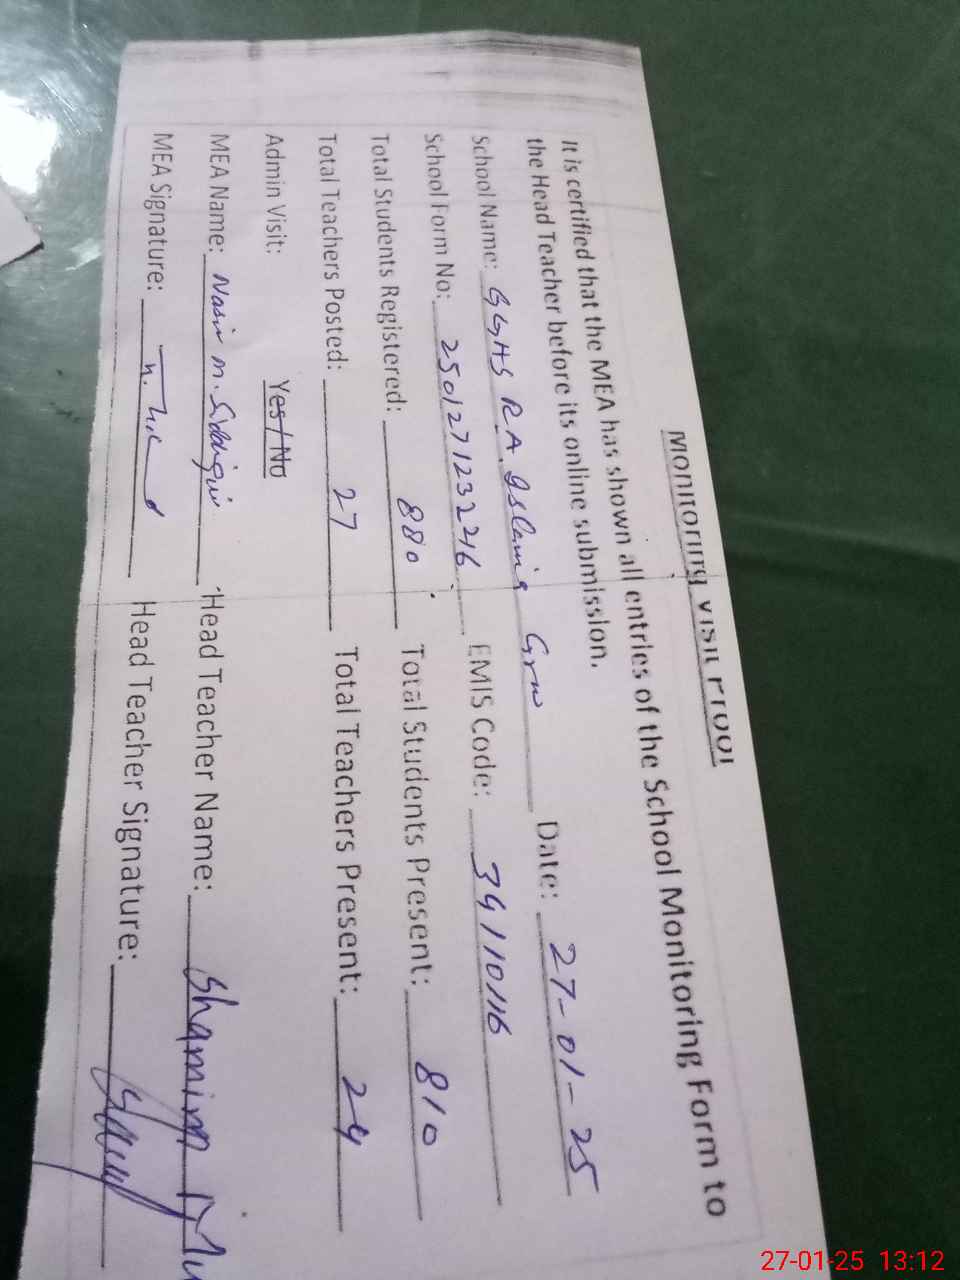 Monitoring Visit Proof
It is certified that the MEA has shown all entries of the School Monitoring Form to
the Head Teacher before its online submission.
School Name: GGHS R.A. Islamia Grw Date: 27-01-25
School Form No: 250127123246 EMIS Code: 34110116
Total Students Registered: 880 Total Students Present: 810
Total Teachers Posted: 27 Total Teachers Present: 24
Admin Visit: Yes / No
MEA Name: Nasir M. Siddiqui Head Teacher Name: Shamim
MEA Signature: Head Teacher Signature:
27-01-25 13:12